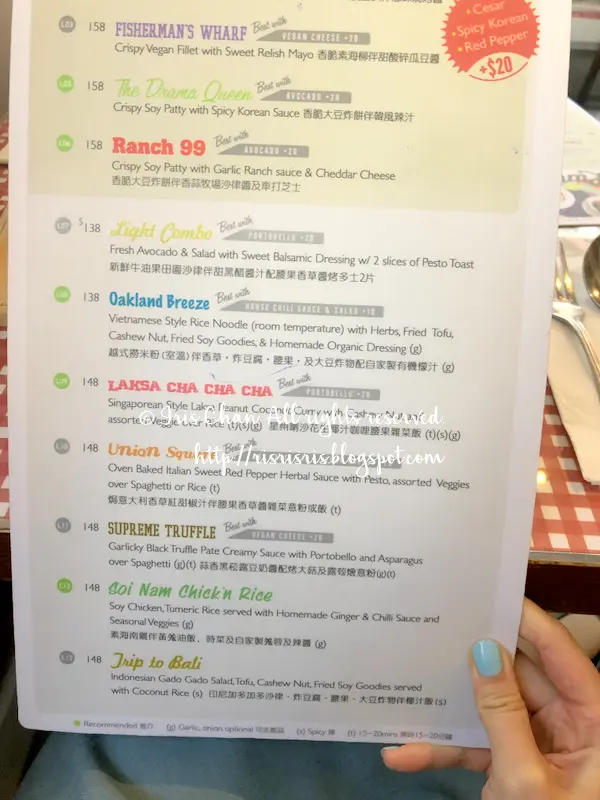 • Cesar
• Spicy Korean
• Red Pepper
+$20
158 FISHERMAN'S WHARF Best with VEGAN CHEESE +20
Crispy Vegan Fillet with Sweet Relish Mayo 香脆素海柳伴甜酸碎瓜豆醬
158 The Drama Queen Best with AVOCADO +20
Crispy Soy Patty with Spicy Korean Sauce 香脆大豆炸餅伴韓風辣汁
L06 158 Ranch 99 Best with AVOCADO +20
Crispy Soy Patty with Garlic Ranch sauce & Cheddar Cheese
香脆大豆炸餅伴香蒜牧場沙律醬及車打芝士
L07 $138 Light Combo Best with PORTOBELLO +20
Fresh Avocado & Salad with Sweet Balsamic Dressing w/ 2 slices of Pesto Toast
新鮮牛油果田園沙律伴甜黑醋醬汁配腰果香草醬烤多士2片
138 Oakland Breeze Best with HOUSE CHILI SAUCE & SALAD +10
Vietnamese Style Rice Noodle (room temperature) with Herbs, Fried Tofu,
Cashew Nut, Fried Soy Goodies, & Homemade Organic Dressing (g)
越式撈米粉(室溫)伴香草，炸豆腐，腰果，及大豆炸物配自家製有機檬汁 (g)
L09 148 LAKSA CHA CHA CHA Best with PORTOBELLO +20
Singaporean Style Laksa Peanut Coconut Curry with Cashew Nut and
assorted Veggie over Rice (t)(s)(g) 星州喇沙花生椰汁咖喱腰果雜菜飯 (t)(s)(g)
© Iris Chan All rights reserved.
http://risrisris.blogspot.com
L10 148 Union Square Best with
Oven Baked Italian Sweet Red Pepper Herbal Sauce with Pesto, assorted Veggies
over Spaghetti or Rice (t)
焗意大利香草紅甜椒汁伴腰果香草醬雜菜意粉或飯 (t)
L11 148 SUPREME TRUFFLE Best with VEGAN CHEESE +20
Garlicky Black Truffle Pate Creamy Sauce with Portobello and Asparagus
over Spaghetti (g)(t) 蒜香黑菘露豆奶醬配烤大菇及露筍燴意粉(g)(t)
L12 148 Soi Nam Chick'n Rice
Soy Chicken, Tumeric Rice served with Homemade Ginger & Chilli Sauce and
Seasonal Veggies (g)
素海南雞伴黃薑油飯、時菜及自家製薑蓉及辣醬 (g)
L13 148 Trip to Bali
Indonesian Gado Gado Salad, Tofu, Cashew Nut, Fried Soy Goodies served
with Coconut Rice (s) 印尼加多加多沙律，炸豆腐，腰果，大豆炸物伴椰汁飯(s)
Recommended 推介 (g) Garlic, onion optional (s) Spicy 辣 (t) 15-20mins 需時15-20分鐘